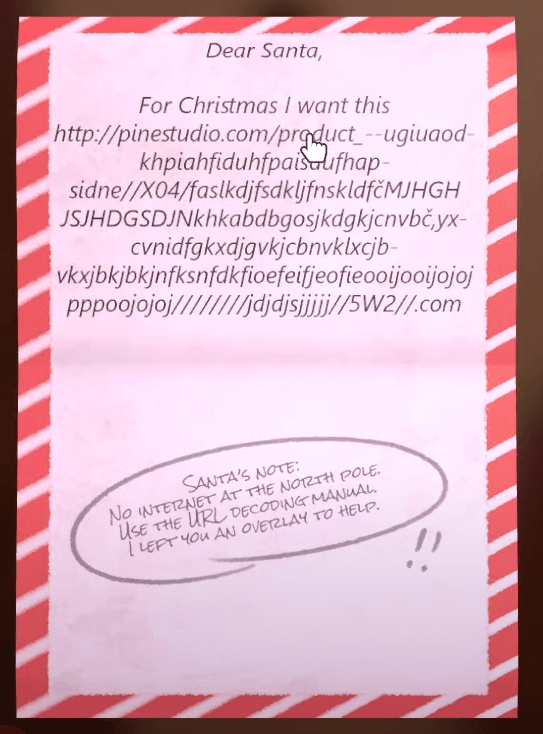 Dear Santa,
For Christmas I want this
http://pinestudio.com/product_--ugiuaod-
khpiahfiduhfpaisdufhap-
sidne//X04/faslkdjfsdkljfnskldfčMJHGH
JSJHDGSDJNkhkabdbgosjkdgkjcnvbč,yx-
cvnidfgkxdjgvkjcbnvklxcjb-
vkxjbkjbkjnfksnfdkfioefeifjeofieooijooijojoj
pppoojojoj////////jdjdjsjjjjj//5W2//.com
SANTA'S NOTE:
NO INTERNET AT THE NORTH POLE.
USE THE URL DECODING MANUAL.
I LEFT YOU AN OVERLAY TO HELP.
!!